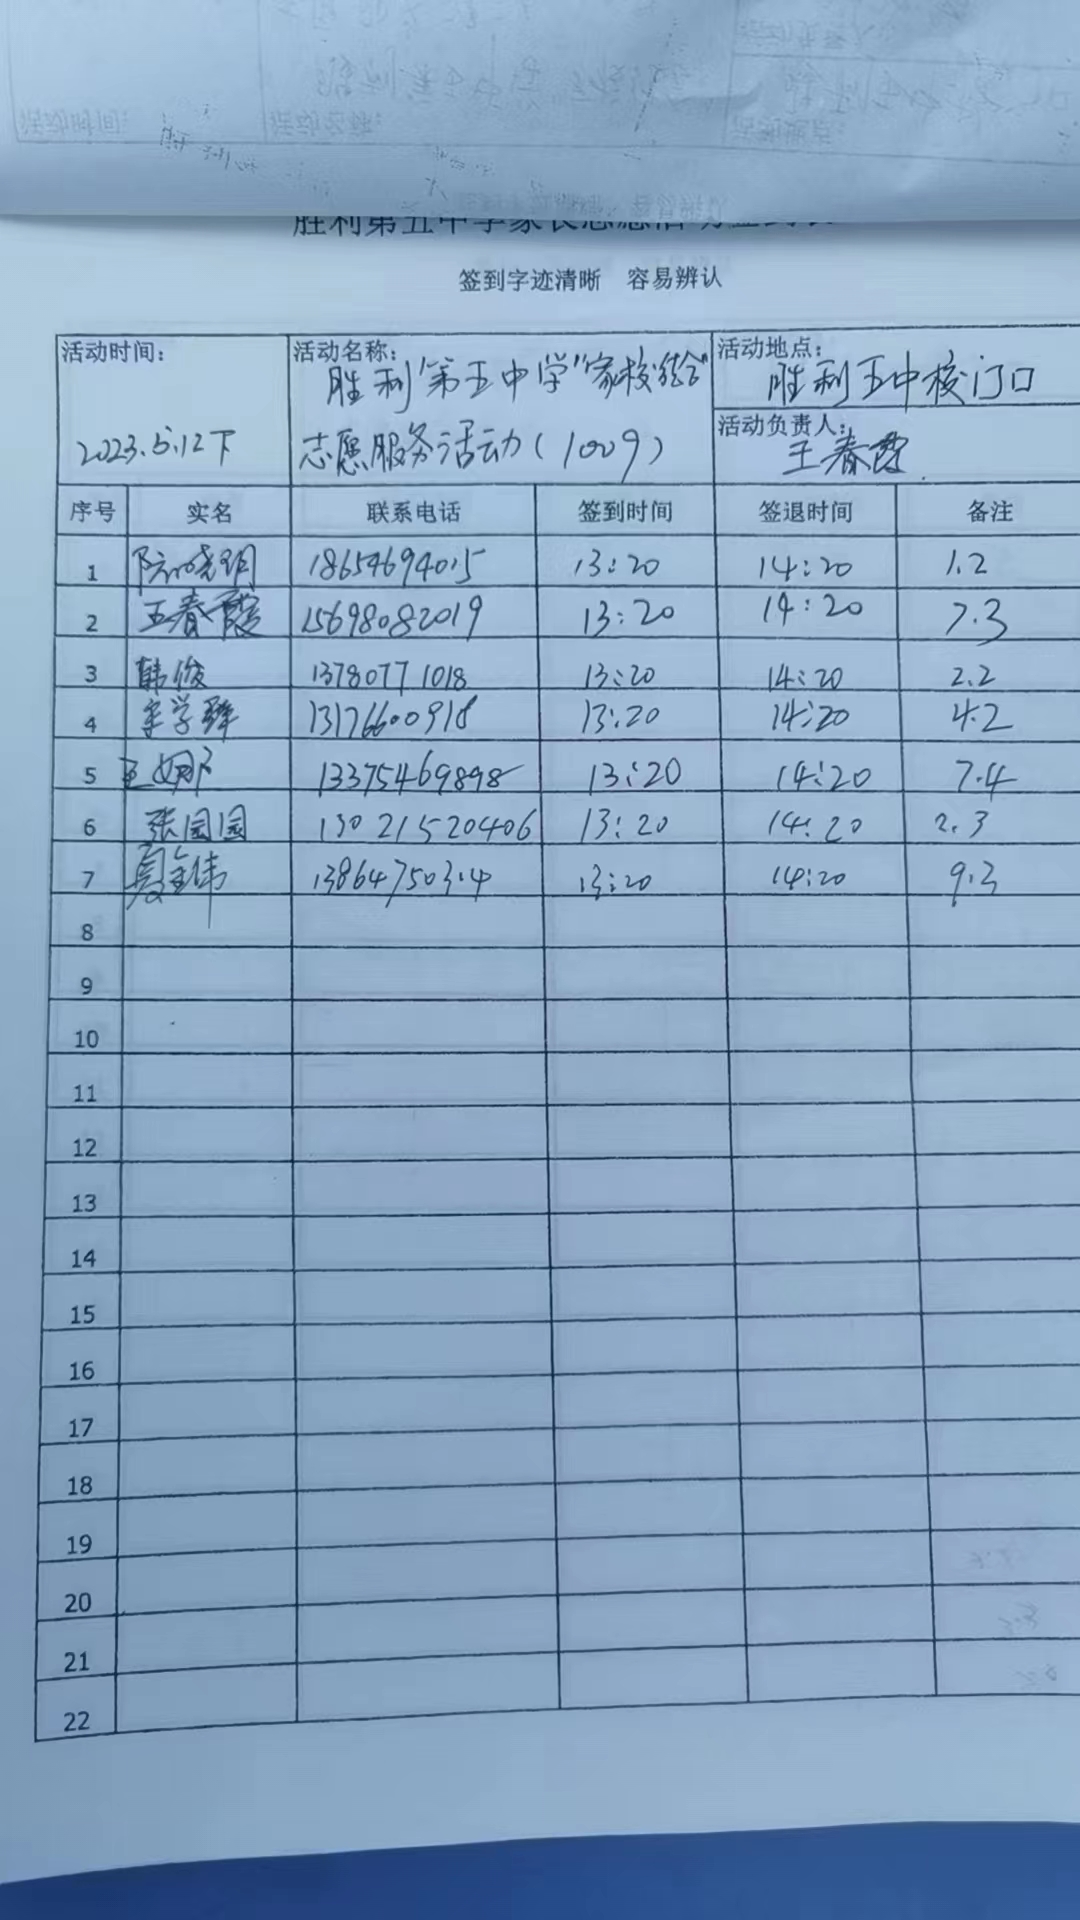 胜利第五中学家长志愿活动签到表
签到字迹清晰 容易辨认
活动时间: 2023.5.12下
活动名称: 胜利第五中学"家校结合"
志愿服务活动(1009)
活动地点: 胜利五中校门口
活动负责人: 王春霞
序号 实名 联系电话 签到时间 签退时间 备注
1 18654694015 13:20 14:20 1.2
2 王春霞 15698082019 13:20 14:20 7.3
3 韩俊 13780771018 13:20 14:20 2.2
4 13176600918 13:20 14:20 4.2
5 王娜 13375469898 13:20 14:20 7.4
6 张园园 13021520406 13:20 14:20 2.3
7 夏金伟 13864750314 13:20 14:20 9.3
8
9
10
11
12
13
14
15
16
17
18
19
20
21
22